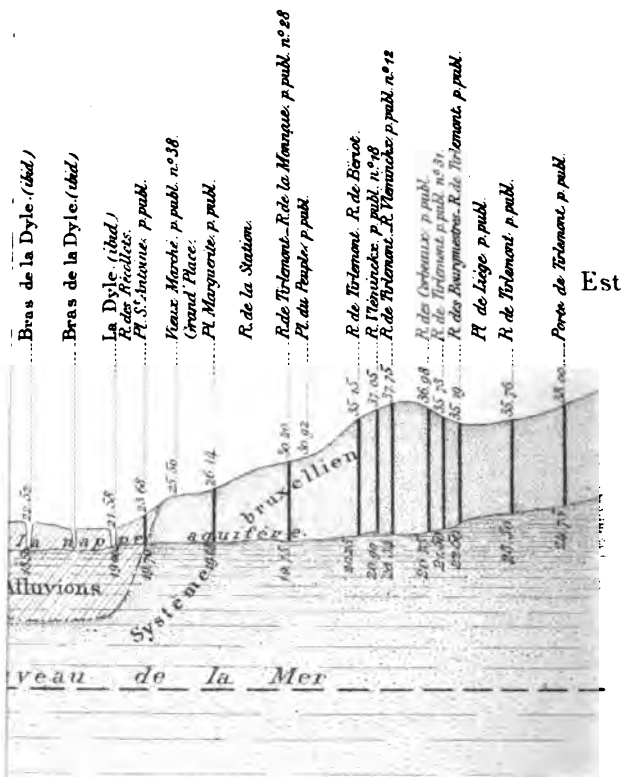 Bras de la Dyle. (ibid.)
Bras de la Dyle. (ibid.)
La Dyle. (ibid.)
R. des Récollets.
Pl. St. Antoine. p. publ.
Vieux Marché. p. publ. n.º 38.
Grand' Place.
Pl. Marguerite. p. publ.
R. de la Station.
R. de Tirlemont_R. de la Monnaie. p. publ. n.º 28
Pl. du Peuple. p. publ.
R. de Tirlemont. R. de Bériot.
R. Vleminckx. p. publ. n.º 18
R. de Tirlemont_R. Vleminckx. p. publ. n.º 12
R. des Corbeaux. p. publ.
R. de Tirlemont. p. publ. n.º 31.
R. des Bourgmestres_R. de Tirlemont. p. publ.
Pl. de Liége. p. publ.
R. de Tirlemont. p. publ.
Porte de Tirlemont. p. publ.
Est
22.52
21.58
23.68
25.50
26.14
30.20
30.92
35.15
37.05
37.75
36.98
35.73
35.19
35.76
38.00
la nappe aquifère.
19.75
20.90
22.60
23.50
24.75
Alluvions
Système bruxellien
veau de la Mer